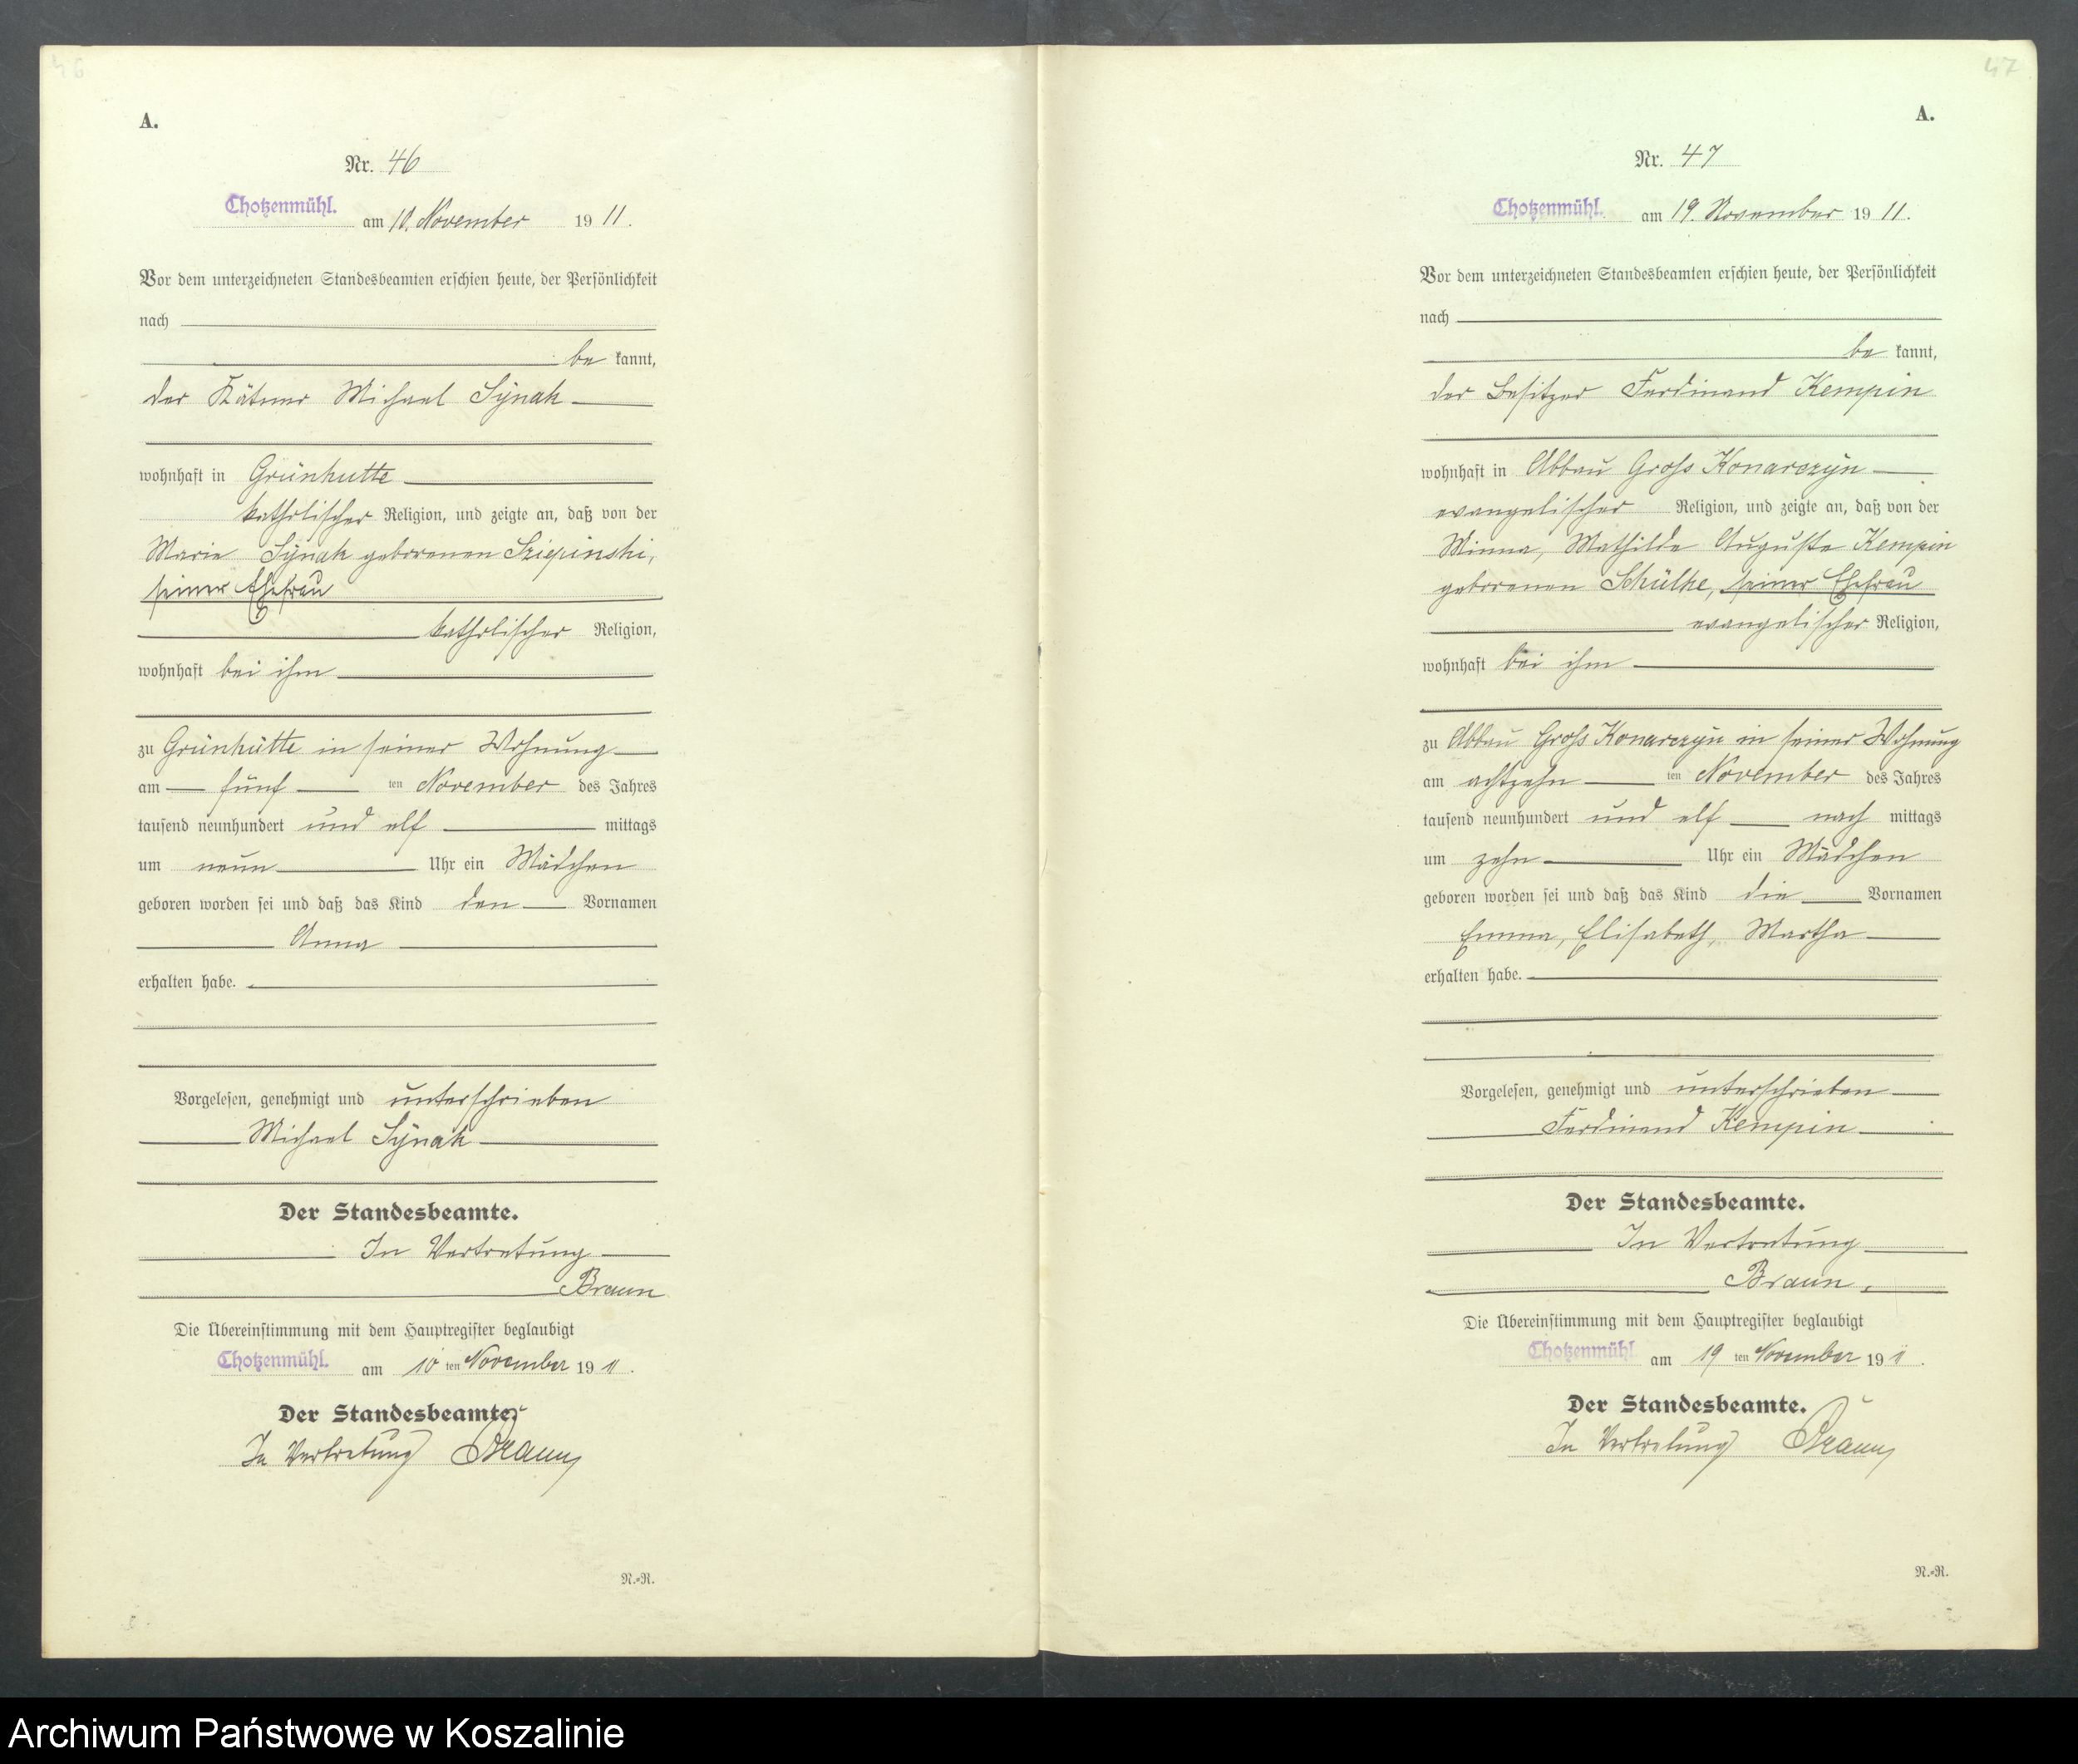 46
A.
Nr. 46
Chotzenmühl. am 10. November 1911.
Vor dem unterzeichneten Standesbeamten erschien heute, der Persönlichkeit
nach
be kannt,
der Kätner Michael Synak
wohnhaft in Grünhütte
katholischer Religion, und zeigte an, daß von der
Marie Synak geborenen Sziepinski,
seiner Ehefrau
katholischer Religion,
wohnhaft bei ihm
zu Grünhütte in seiner Wohnung
am fünf ten November des Jahres
tausend neunhundert und elf mittags
um neun Uhr ein Mädchen
geboren worden sei und daß das Kind den Vornamen
Anna
erhalten habe.
Vorgelesen, genehmigt und unterschrieben
Michael Synak
Der Standesbeamte.
In Vertretung
Braun
Die Übereinstimmung mit dem Hauptregister beglaubigt
Chotzenmühl. am 10 ten November 1911.
Der Standesbeamte.
In Vertretung Braun
N.-R.
47
A.
Nr. 47
Chotzenmühl. am 19. November 1911.
Vor dem unterzeichneten Standesbeamten erschien heute, der Persönlichkeit
nach
be kannt,
der Besitzer Ferdinand Kempin
wohnhaft in Abbau Gross Konarczyn
evangelischer Religion, und zeigte an, daß von der
Minna, Mathilde Auguste Kempin
geborenen Schülke, seiner Ehefrau
evangelischer Religion,
wohnhaft bei ihm
zu Abbau Gross Konarczyn in seiner Wohnung
am achtzehn ten November des Jahres
tausend neunhundert und elf nach mittags
um zehn Uhr ein Mädchen
geboren worden sei und daß das Kind die Vornamen
Emma, Elisabeth, Martha
erhalten habe.
Vorgelesen, genehmigt und unterschrieben
Ferdinand Kempin
Der Standesbeamte.
In Vertretung
Braun.
Die Übereinstimmung mit dem Hauptregister beglaubigt
Chotzenmühl am 19 ten November 1911.
Der Standesbeamte.
In Vertretung Braun
N.-R.
Archiwum Państwowe w Koszalinie